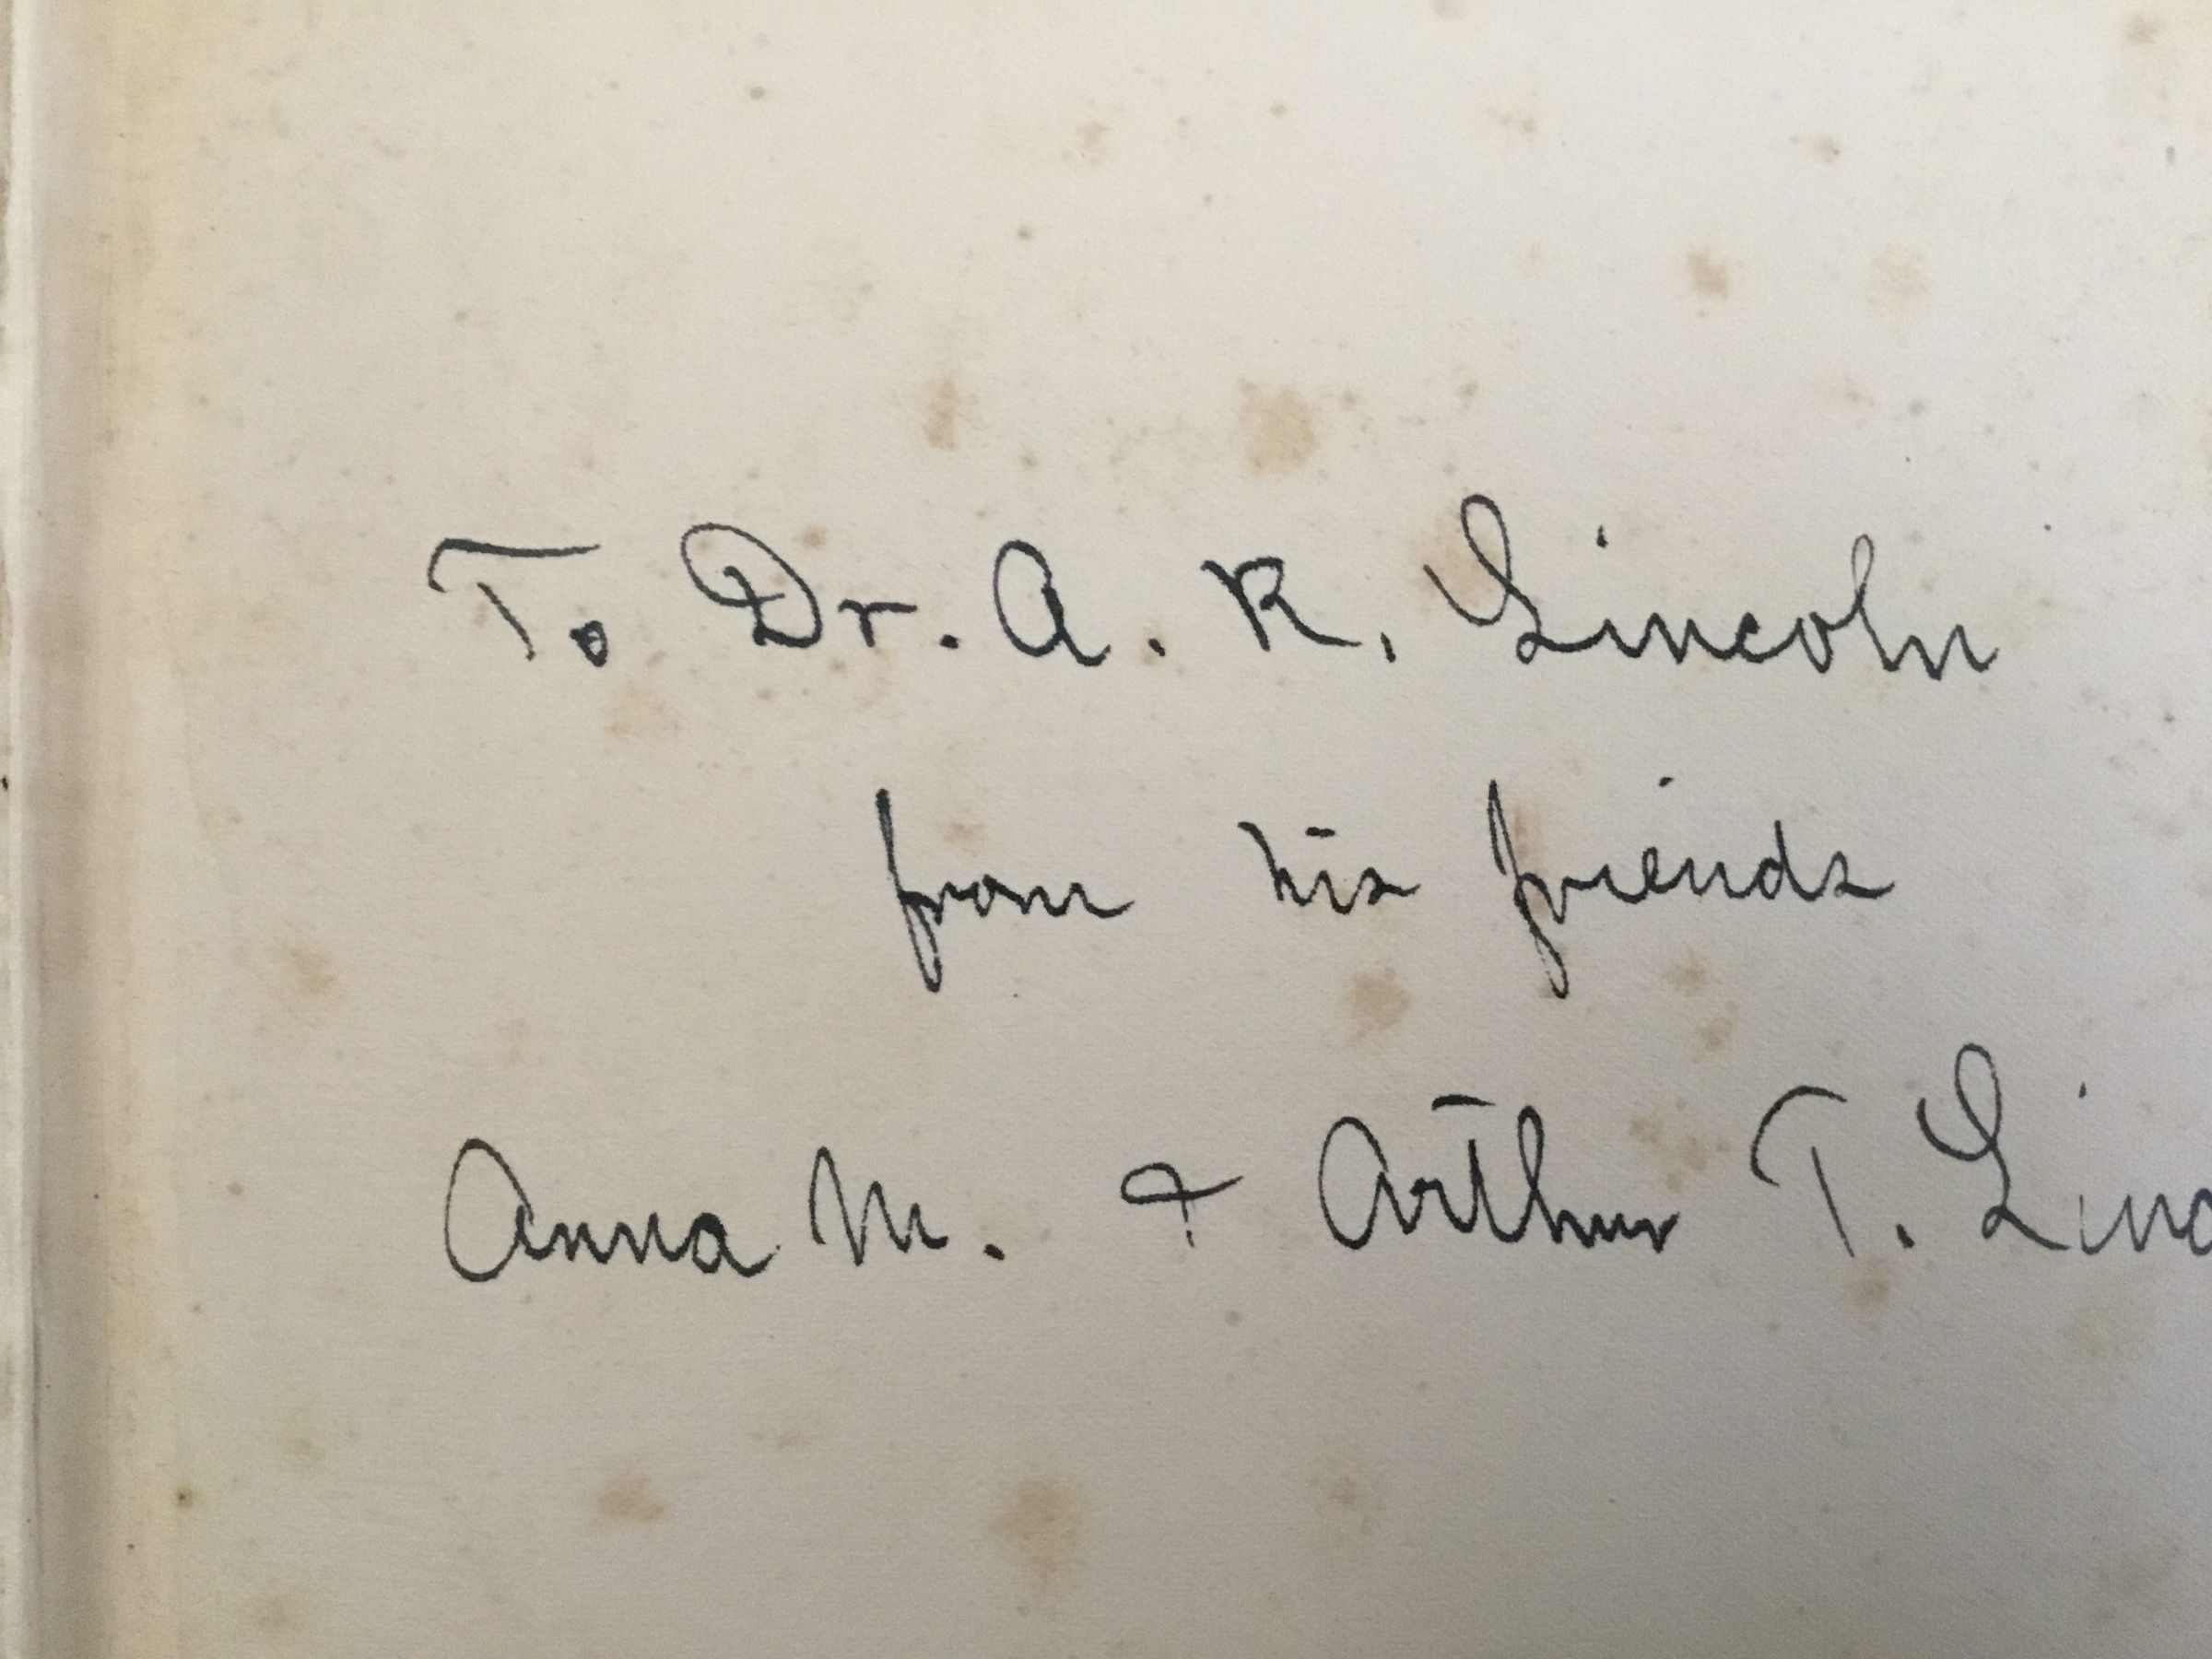 To Dr. A. R. Lincoln
from his friends
Anna M. & Arthur T. Linc